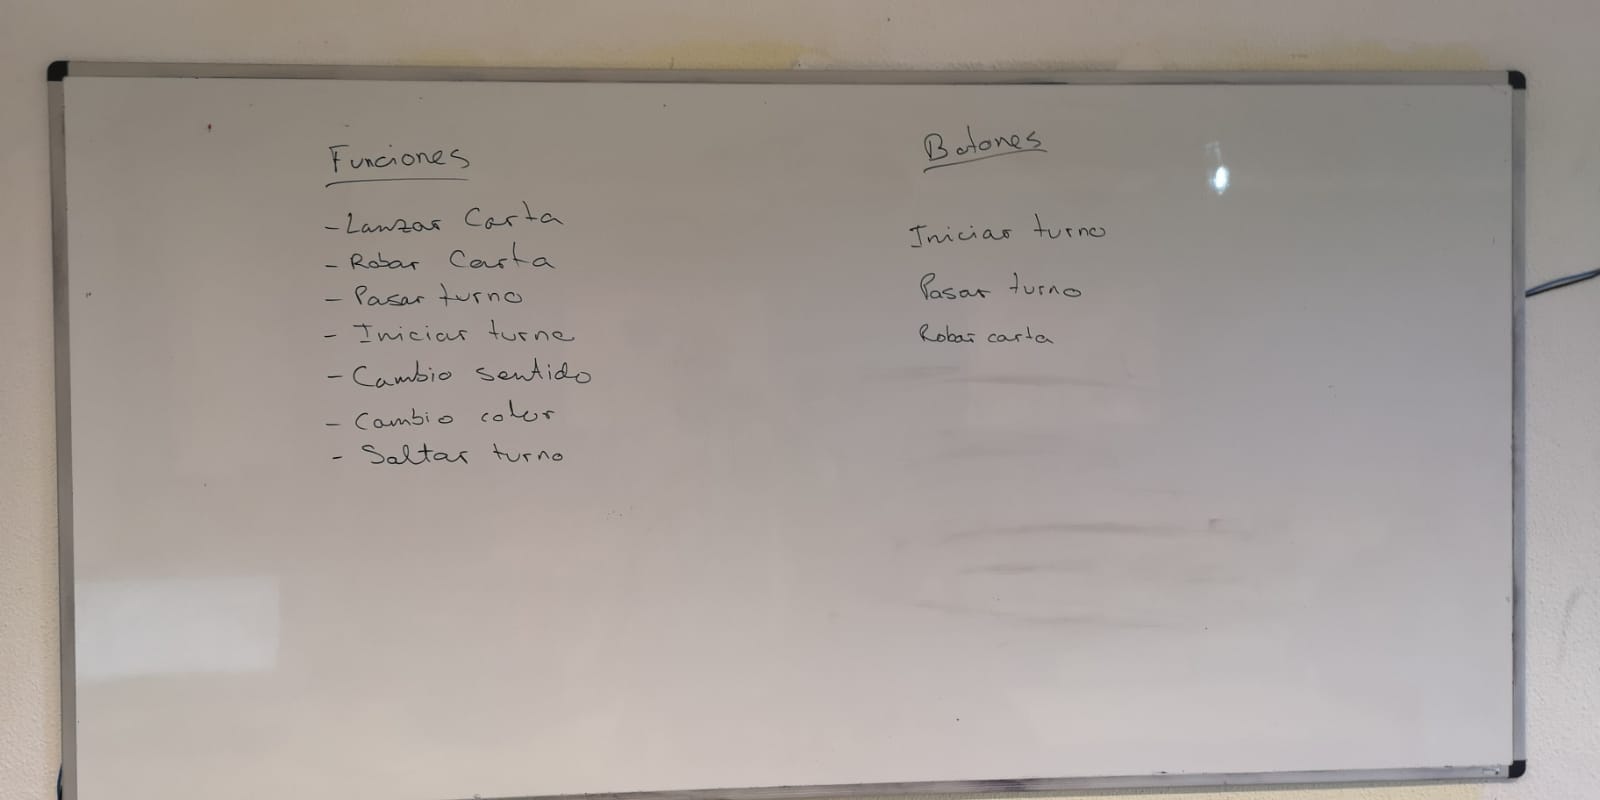 Funciones
- Lanzar Carta
- Robar Carta
- Pasar turno
- Iniciar turno
- Cambio sentido
- Cambio color
- Saltar turno
Botones
Iniciar turno
Pasar turno
Robar carta